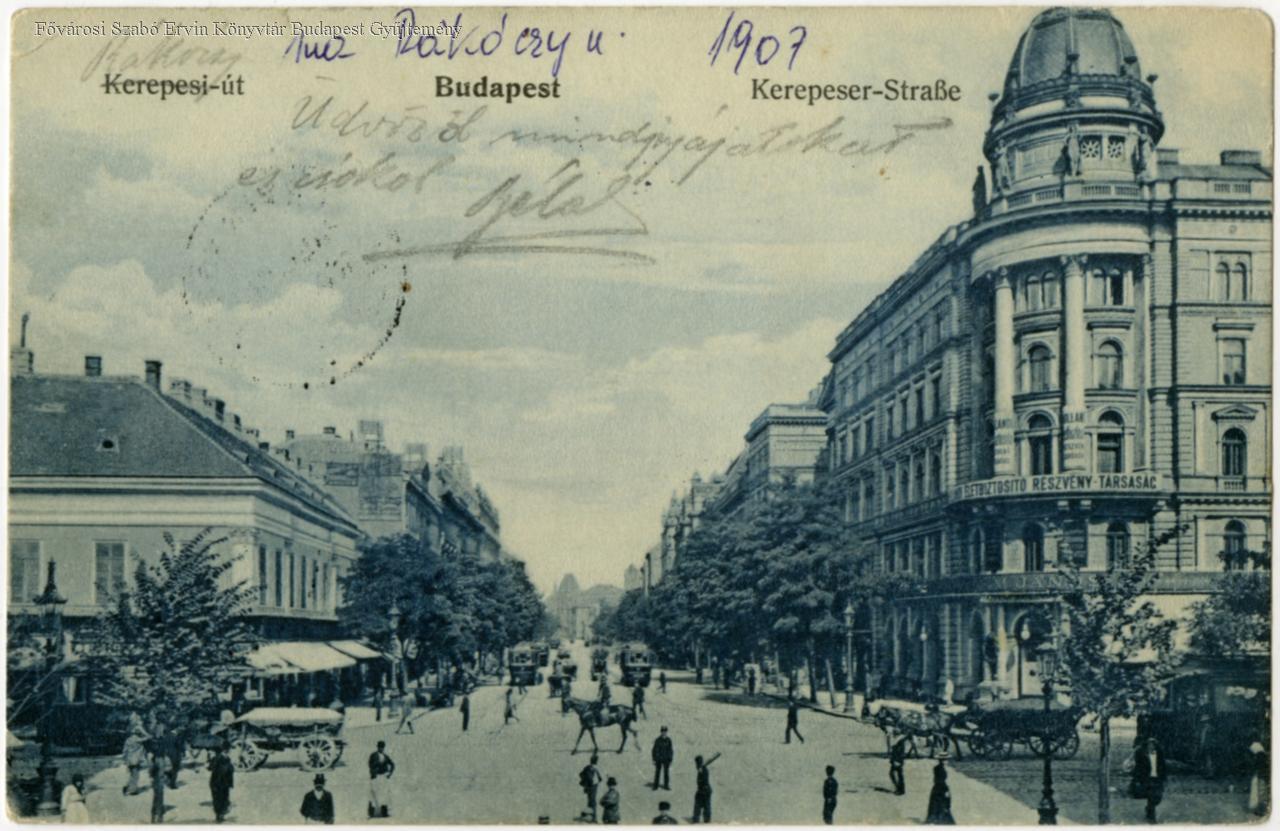 Fővárosi Szabó Ervin Könyvtár Budapest Gyűjtemény
Rákóczy ma Rákóczy u. 1907
Kerepesi-út Budapest Kerepeser-Straße
Üdvözöl mindnyájatokat
és csókol
Béla
ÉLETBIZTOSÍTÓ RÉSZVÉNY-TÁRSASÁG
JÁNOS